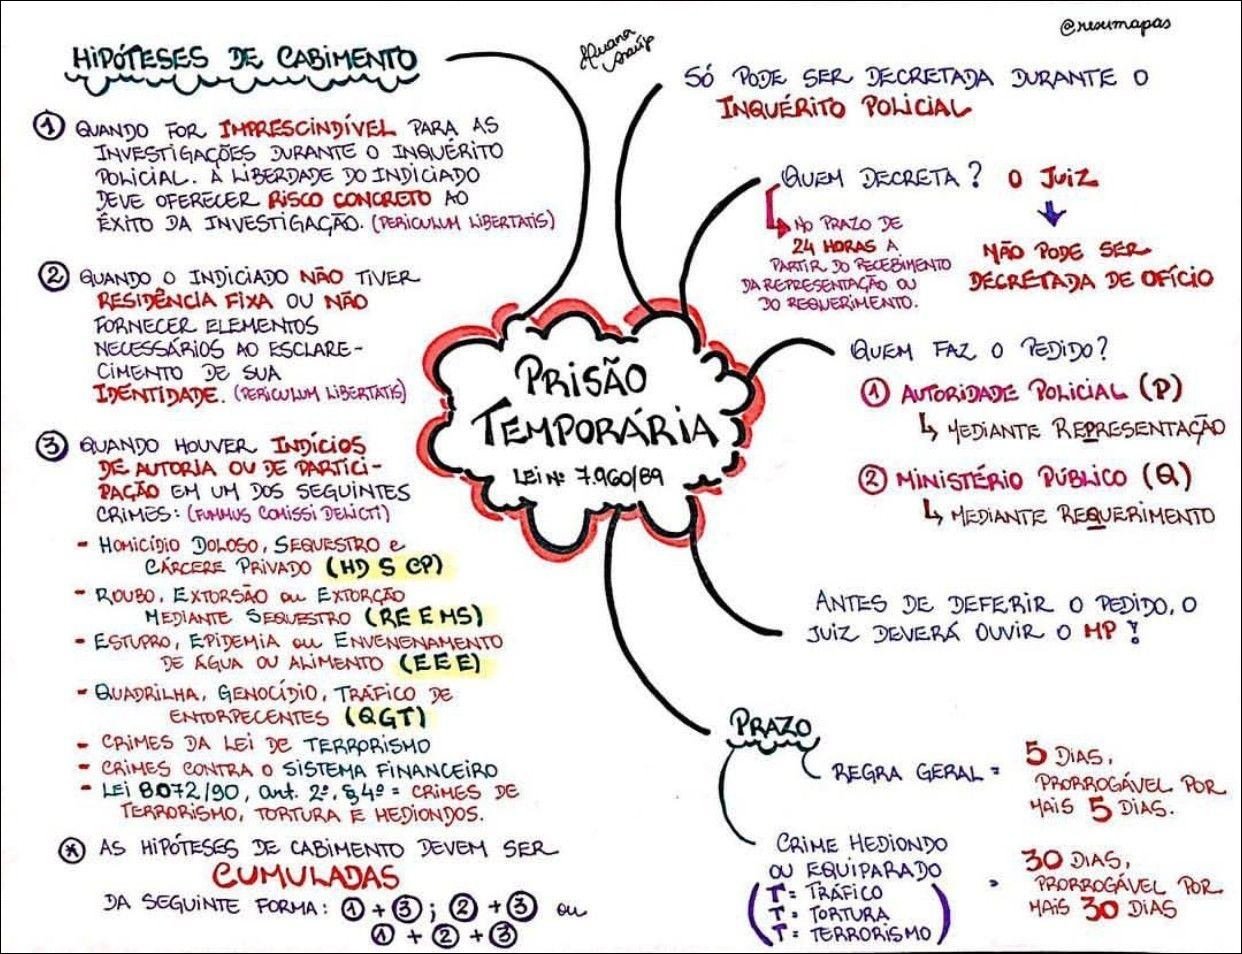 @resumapas
HIPÓTESES DE CABIMENTO
① QUANDO FOR IMPRESCINDÍVEL PARA AS
INVESTIGAÇÕES DURANTE O INQUÉRITO
POLICIAL. A LIBERDADE DO INDICIADO
DEVE OFERECER RISCO CONCRETO AO
ÊXITO DA INVESTIGAÇÃO. (PERICULUM LIBERTATIS)
② QUANDO O INDICIADO NÃO TIVER
RESIDÊNCIA FIXA OU NÃO
FORNECER ELEMENTOS
NECESSÁRIOS AO ESCLARE-
CIMENTO DE SUA
IDENTIDADE. (PERICULUM LIBERTATIS)
③ QUANDO HOUVER INDÍCIOS
DE AUTORIA OU DE PARTICI-
PAÇÃO EM UM DOS SEGUINTES
CRIMES: (FUMMUS COMISSI DELICTI)
- HOMICÍDIO DOLOSO, SEQUESTRO e
CÁRCERE PRIVADO (HD S CP)
- ROUBO, EXTORSÃO ou EXTORÇÃO
MEDIANTE SEQUESTRO (RE E MS)
- ESTUPRO, EPIDEMIA ou ENVENENAMENTO
DE ÁGUA OU ALIMENTO (EEE)
- QUADRILHA, GENOCÍDIO, TRÁFICO DE
ENTORPECENTES (QGT)
- CRIMES DA LEI DE TERRORISMO
- CRIMES CONTRA O SISTEMA FINANCEIRO
- LEI 8.072/90, art. 2º, §4º = CRIMES DE
TERRORISMO, TORTURA E HEDIONDOS.
* AS HIPÓTESES DE CABIMENTO DEVEM SER
CUMULADAS
DA SEGUINTE FORMA: ① + ③ ; ② + ③ ou
① + ② + ③
PRISÃO
TEMPORÁRIA
LEI Nº 7.960/89
SÓ PODE SER DECRETADA DURANTE O
INQUÉRITO POLICIAL
QUEM DECRETA? O JUIZ
NO PRAZO DE
24 HORAS A
PARTIR DO RECEBIMENTO
DA REPRESENTAÇÃO OU
DO REQUERIMENTO.
NÃO PODE SER
DECRETADA DE OFÍCIO
QUEM FAZ O PEDIDO?
① AUTORIDADE POLICIAL (P)
↳ MEDIANTE REPRESENTAÇÃO
② MINISTÉRIO PÚBLICO (Q)
↳ MEDIANTE REQUERIMENTO
ANTES DE DEFERIR O PEDIDO, O
JUIZ DEVERÁ OUVIR O MP!
PRAZO
REGRA GERAL =
5 DIAS,
PRORROGÁVEL POR
MAIS 5 DIAS.
CRIME HEDIONDO
OU EQUIPARADO
(T = TRÁFICO
T = TORTURA
T = TERRORISMO) =
30 DIAS,
PRORROGÁVEL POR
MAIS 30 DIAS